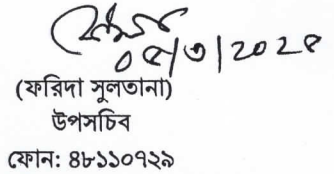 ০৫/৩/২০২৫
(ফরিদা সুলতানা)
উপসচিব
ফোন: ৪৮১১০৭২৯